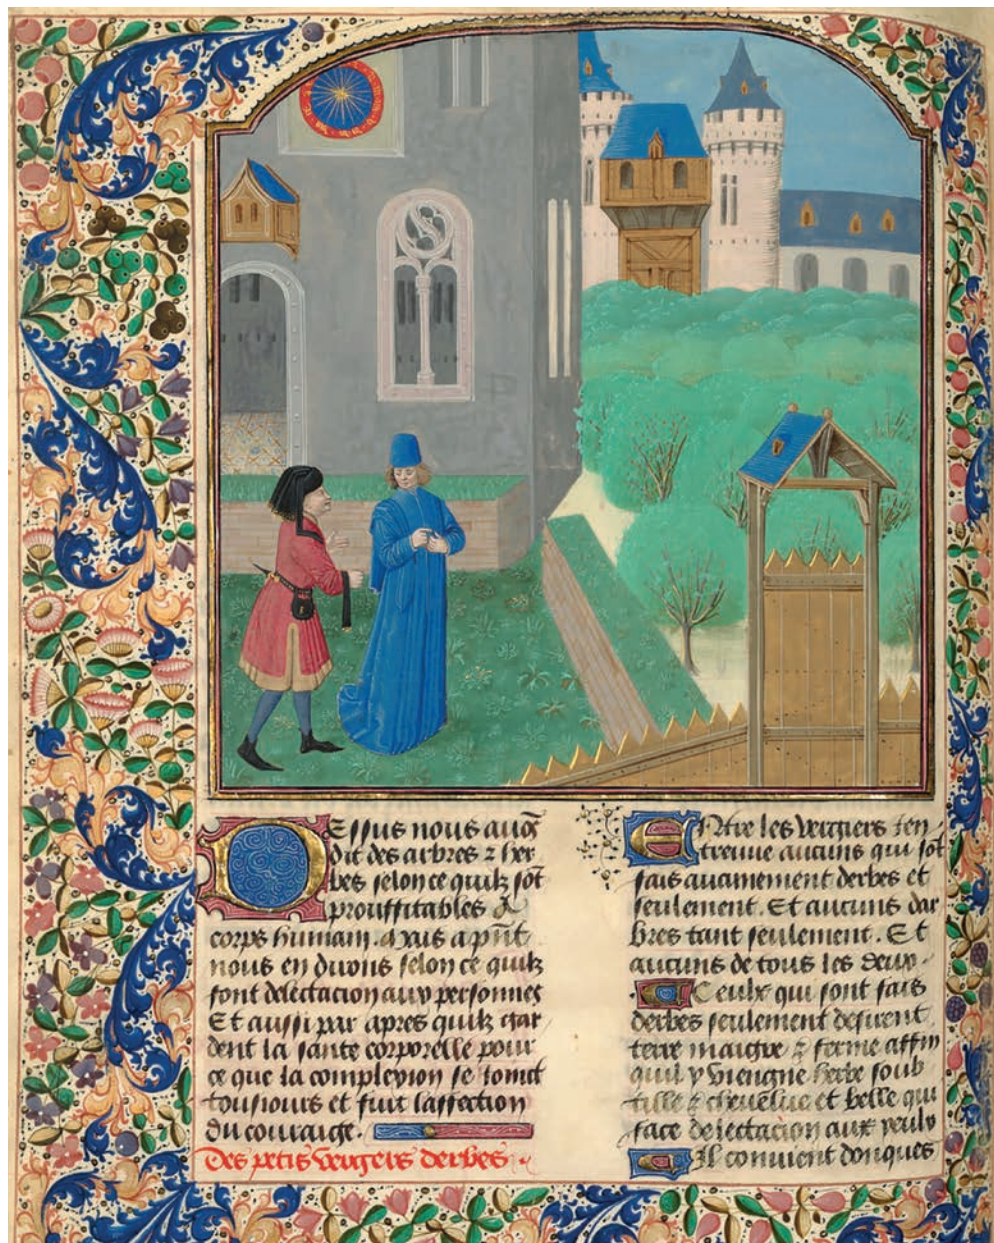 Dessus nous auõs
dit des arbres ⁊ her
bes selon ce quilz sõt
prouffitables au
corps humain. Mais a pñt
nous en dirons selon ce quilz
font delectacion aux personnes
Et aussi par apres quilz gar
dent la sante corporelle pour
ce que la complexion se ioinct
tousiours et suit laffection
du couraige.
Des petis vergiers derbes.
Entre les vergiers sen
treuue aucuns qui sõt
fais aucunement derbes et
seulement. Et aucuns dar
bres tant seulement. Et
aucuns de tous les deux.
Ceulx qui sont fais
derbes seulement desirent
terre maigre ⁊ ferme affin
quil y viengne herbe soub
tille ⁊ cheuelue et belle qui
face delectacion aux yeulx
Il conuient donques